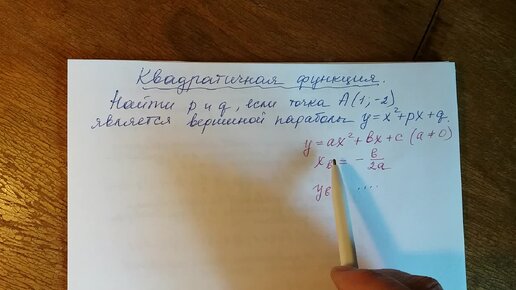 Квадратичная функция.
Найти p и q, если точка A(1,-2)
является вершиной параболы y=x²+px+q.
y=ax²+bx+c (a≠0)
x_в = -b/2a
y_в ....